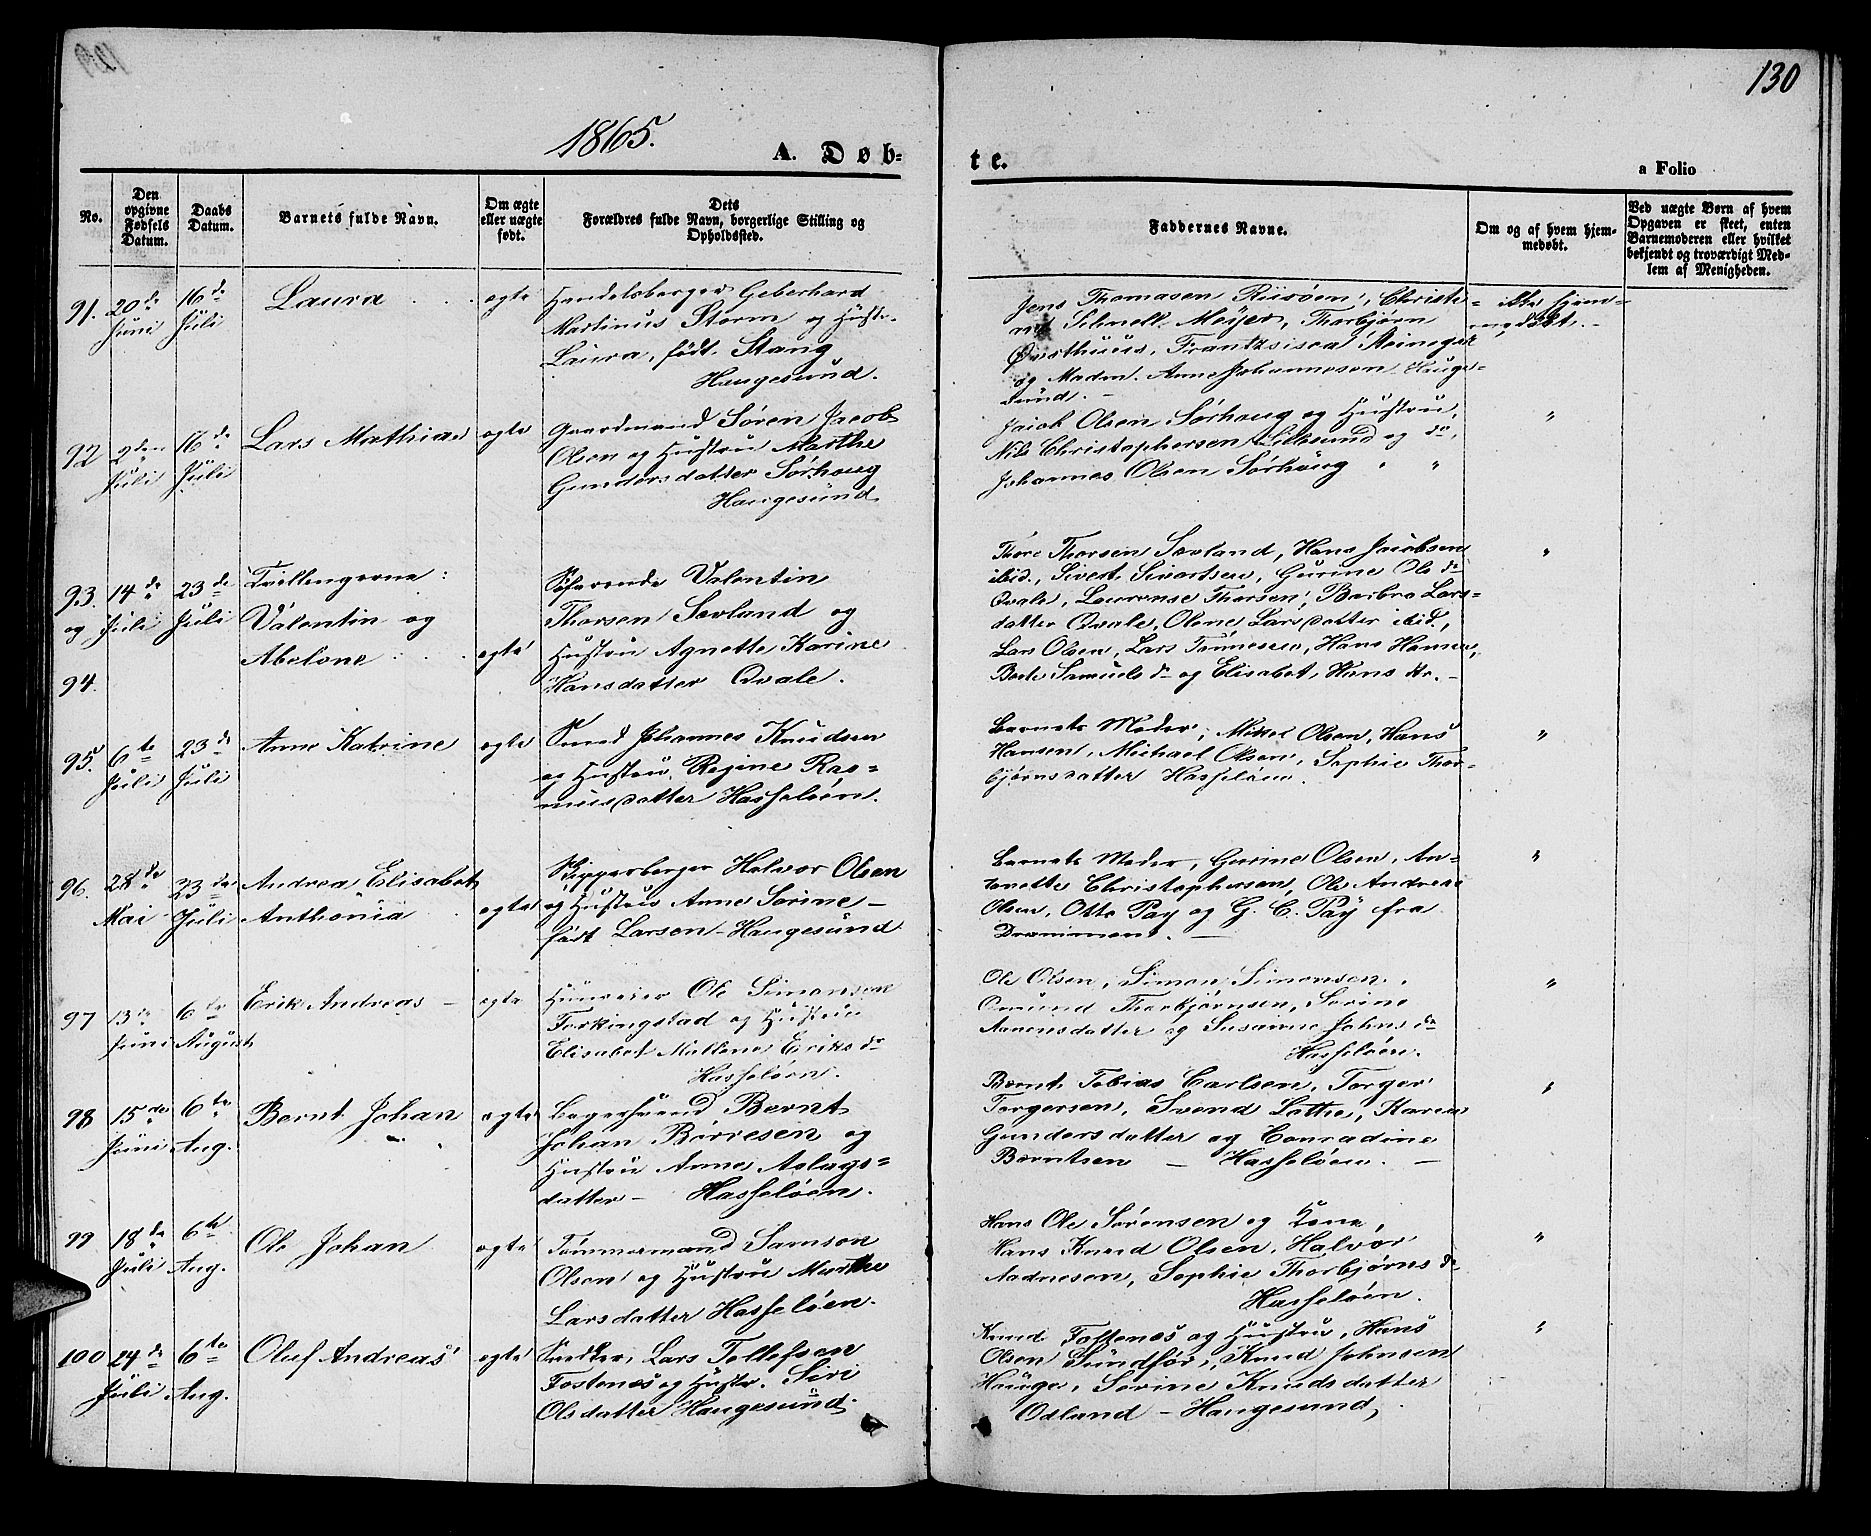 130
1865.
A. Døb-
te.
a Folio
No.
Den opgivne Fødsels Datum.
Daabs Datum.
Barnets fulde Navn.
Om ægte eller uægte født.
Dets Forældres fulde Navn, borgerlige Stilling og Opholdssted.
Faddernes Navne.
Om og af hvem hjemmedøbt.
Ved uægte Børn af hvem Opgaven er skeet, enten Barnemoderen eller hvilket bekjendt og troværdigt Medlem af Menigheden.
91. 20de Juni
16de Juli
Laura
ægte
Handelsborger Geberhard
Martinus Storm og Hustr.
Laura, født Stang
Haugesund.
Jens Thomasen Riisøen, Christi-
Schnell Meyer, Thorbjørn
Østhuus, Frantzisca Steinegir
og Madm. Anne Johannesen Hauge-
sund.
ikke hjem-
medøbt.
92 2den Juli
16de Juli
Lars Mathias
ægte
Gaardmand Søren Jacob
Olsen og Hustru Marthe
Gundersdatter Sørhaug
Haugesund
Jacob Olsen Sørhaug og Hustru,
Nils Christophersen Lillesund og do,
Johannes Olsen Sørhaug " "
"
93. og 94.
14de Juli
23de Juli
Tvillingerne:
Valentin og
Abelone
ægte
Søfarende Valentin
Thorsen Sævland og
Hustru Agnette Karine
Hansdatter Qvale.
Thore Thorsen Sævland, Hans Jacobsen
ibid., Sivert Sivertsen, Gurine Ols dr
Qvale, Laurense Thorsen, Barbro Lars-
datter Qvale, Olene Larsdatter ibid.,
Lars Olsen, Lars Tønnesen, Hans Hansen,
Berte Samuels dr og Elisabet Hans dr.
"
95. 6te Juli
23de Juli
Anne Katrine
ægte
Smed Johannes Knudsen
og Hustru Regine Ras-
musdatter Hasseløen.
Barnets Moder, Mikel Olsen, Hans
Hansen, Michael Olsen, Sophie Thor-
bjørnsdatter Hasseløen.
"
96. 28de Mai
23de Juli
Andrea Elisabet
Anthonia
ægte
Skipperborger Halvor Olsen
og Hustru Anne Sørine
født Larsen - Haugesund
Barnets Moder, Gurine Olsen, An-
tonette Christophersen, Ole Andreas
Olsen, Otto Pay og G. C. Pay fra
"
97 13de Juni
6te August
Erik Andreas
ægte
Huuseier Ole Simonsen
Ferkingstad og Hustru
Elisabet Mallene Eriks dr
Hasseløen.
Ole Olsen, Simon Simonsen,
Omund Thorbjørnsen, Serine
Aanensdatter og Susanne Johns dr
Hasseløen.
"
98 15de Juni
6te Aug.
Bernt Johan
ægte
Bagersvend Bernt
Johan Børresen og
Hustru Anne Aslags-
datter - Hasseløen.
Bernt Tobias Carlsen, Torger
Torgersen, Svend Lothe, Karen
Gundersdatter og Conradine
Berntsen - Hasseløen.
"
99 18de Juli
6te Aug.
Ole Johan
ægte
Tømmermand Samson
Olsen og Hustru Marthe
Larsdatter Hasseløen.
Hans Ole Sørensen og Kone,
Hans Knud Olsen, Halvor
Aadnesen, Sophie Thorbjørns dr
Hasseløen.
"
100 24de Juli
6te Aug.
Oluf Andreas
ægte
Snedker Lars Tollefsen
Fostenæs og Hustr. Siri
Olsdatter Haugesund.
Knud Fostenæs og Hustru, Hans
Olsen Sundfør, Knud Johnsen
Hauge, Serine Knudsdatter
Odland - Haugesund,
"